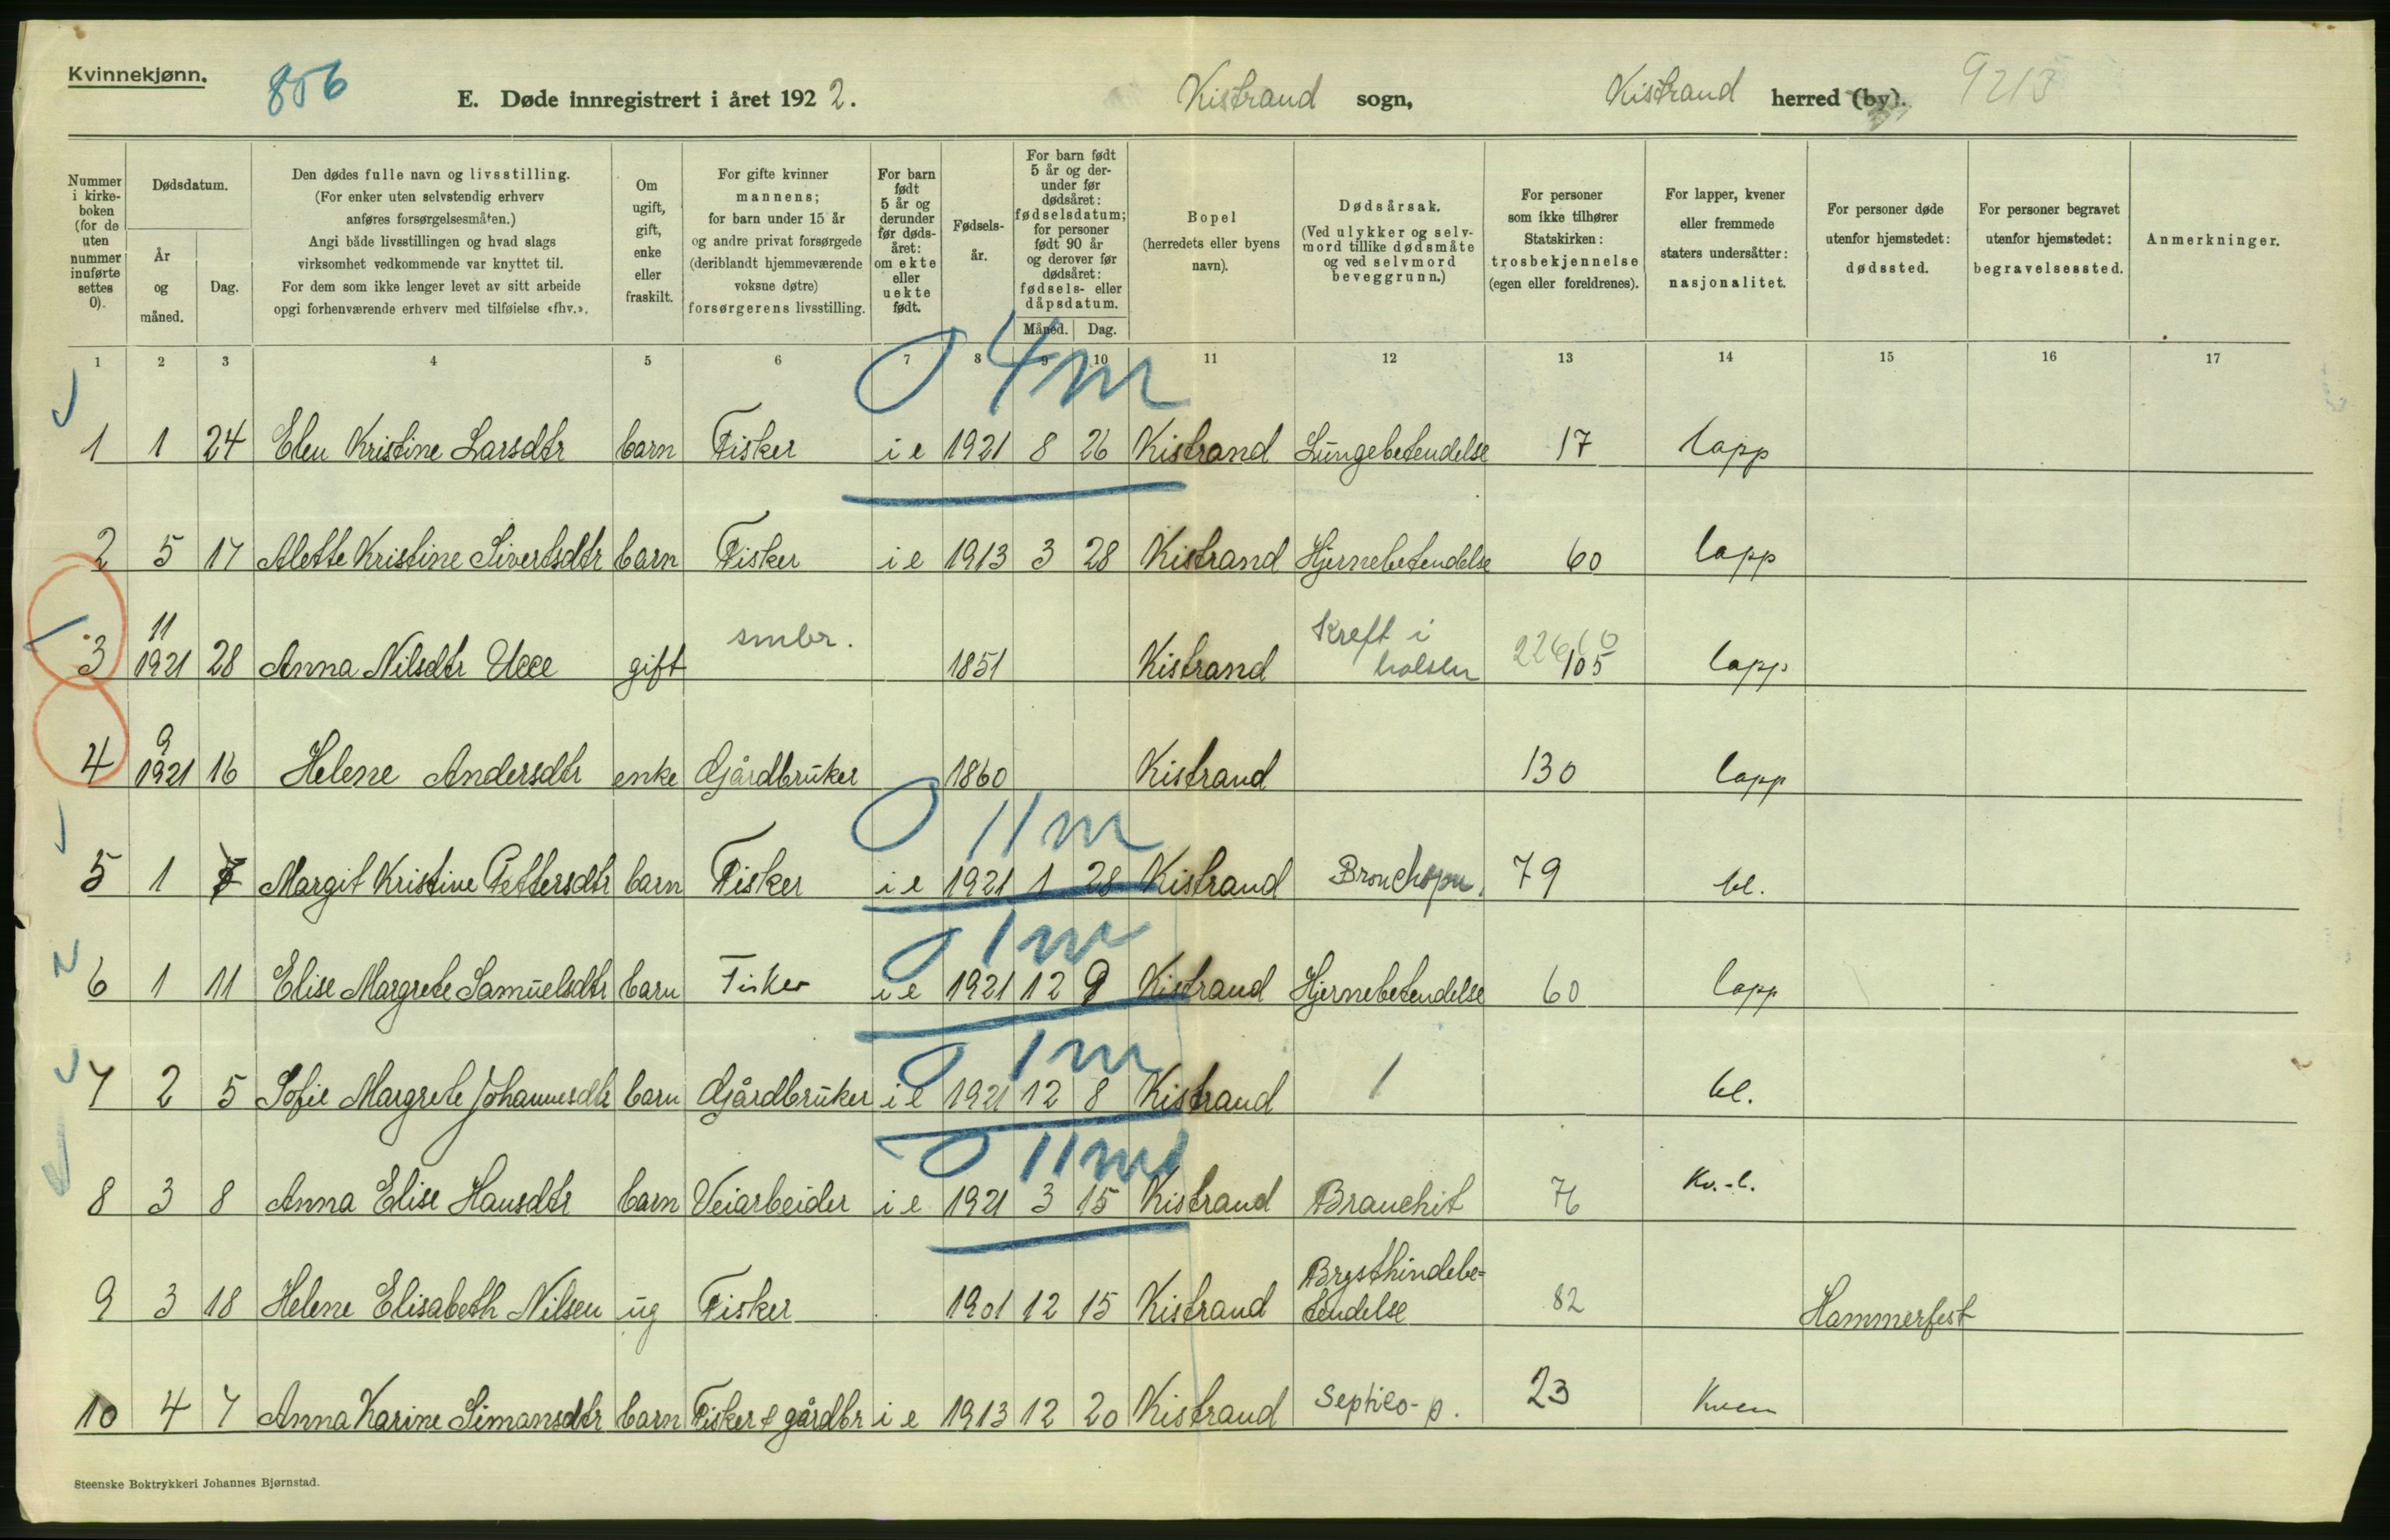 Kvinnekjønn.
856
E. Døde innregistrert i året 192 2.
Kistrand sogn,
Kistrand herred (by).
Nummer i kirke- boken (for de uten nummer innførte settes 0).
Dødsdatum.
År og måned.
Dag.
Den dødes fulle navn og livsstilling.
(For enker uten selvstendig erhverv
anføres forsørgelsesmåten.)
Angi både livsstillingen og hvad slags
virksomhet vedkommende var knyttet til.
For dem som ikke lenger levet av sitt arbeide
opgi forhenværende erhverv med tilføielse «fhv.».
Om ugift, gift, enke eller fraskilt.
For gifte kvinner
mannens;
for barn under 15 år
og andre privat forsørgede
(deriblandt hjemmeværende
voksne døtre)
forsørgerens livsstilling.
For barn født 5 år og derunder før døds- året: om ekte eller uekte født.
Fødsels- år.
For barn født 5 år og der- under før dødsåret: fødselsdatum; for personer født 90 år og derover før dødsåret: fødsels- eller dåpsdatum.
Måned. Dag.
Bopel
(herredets eller byens
navn).
Dødsårsak.
(Ved ulykker og selv-
mord tillike dødsmåte
og ved selvmord
beveggrunn.)
For personer
som ikke tilhører
Statskirken:
trosbekjennelse
(egen eller foreldrenes).
For lapper, kvener
eller fremmede
staters undersåtter:
nasjonalitet.
For personer døde
utenfor hjemstedet:
dødssted.
For personer begravet
utenfor hjemstedet:
begravelsessted.
Anmerkninger.
1 2 3 4 5 6 7 8 9 10 11 12 13 14 15 16 17
0 4 m
1 1 24 Elen Kristine Larsdtr barn Fisker i e 1921 8 26 Kistrand Lungebetendelse 17 lapp
2 5 17 Alette Kristine Sivertsdtr barn Fisker i e 1913 3 28 Kistrand Hjernebetendelse 60 lapp
11 smbr. Kreft i
3 1921 28 Anna Nilsdtr gift 1851 Kistrand halsen 105 lapp
9
4 1921 16 Helene Andersdtr enke Gårdbruker 1860 Kistrand 130 lapp
0 11 m
5 1 7 Margit Kristine Pettersdtr barn Fisker i e 1921 1 28 Kistrand Bronchopn. 79 bl.
0 1 m
6 1 11 Elise Margrete Samuelsdtr barn Fisker i e 1921 12 9 Kistrand Hjernebetendelse 60 lapp
0 1 m
7 2 5 Sofie Margrete Johannesdtr barn Gårdbruker i e 1921 12 8 Kistrand / bl.
0 11 m
8 3 8 Anna Elise Hansdtr barn Veiarbeider i e 1921 3 15 Kistrand Branchit 76 Kv.-l.
Brysthindebe-
9 3 18 Helene Elisabeth Nilsen ug Fisker 1901 12 15 Kistrand tendelse 82 Hammerfest
10 4 7 Anna Karine Simonsdtr barn Fisker & gårdbr i e 1913 12 20 Kistrand Septico-p. 23 Kven
Steenske Boktrykkeri Johannes Bjørnstad.